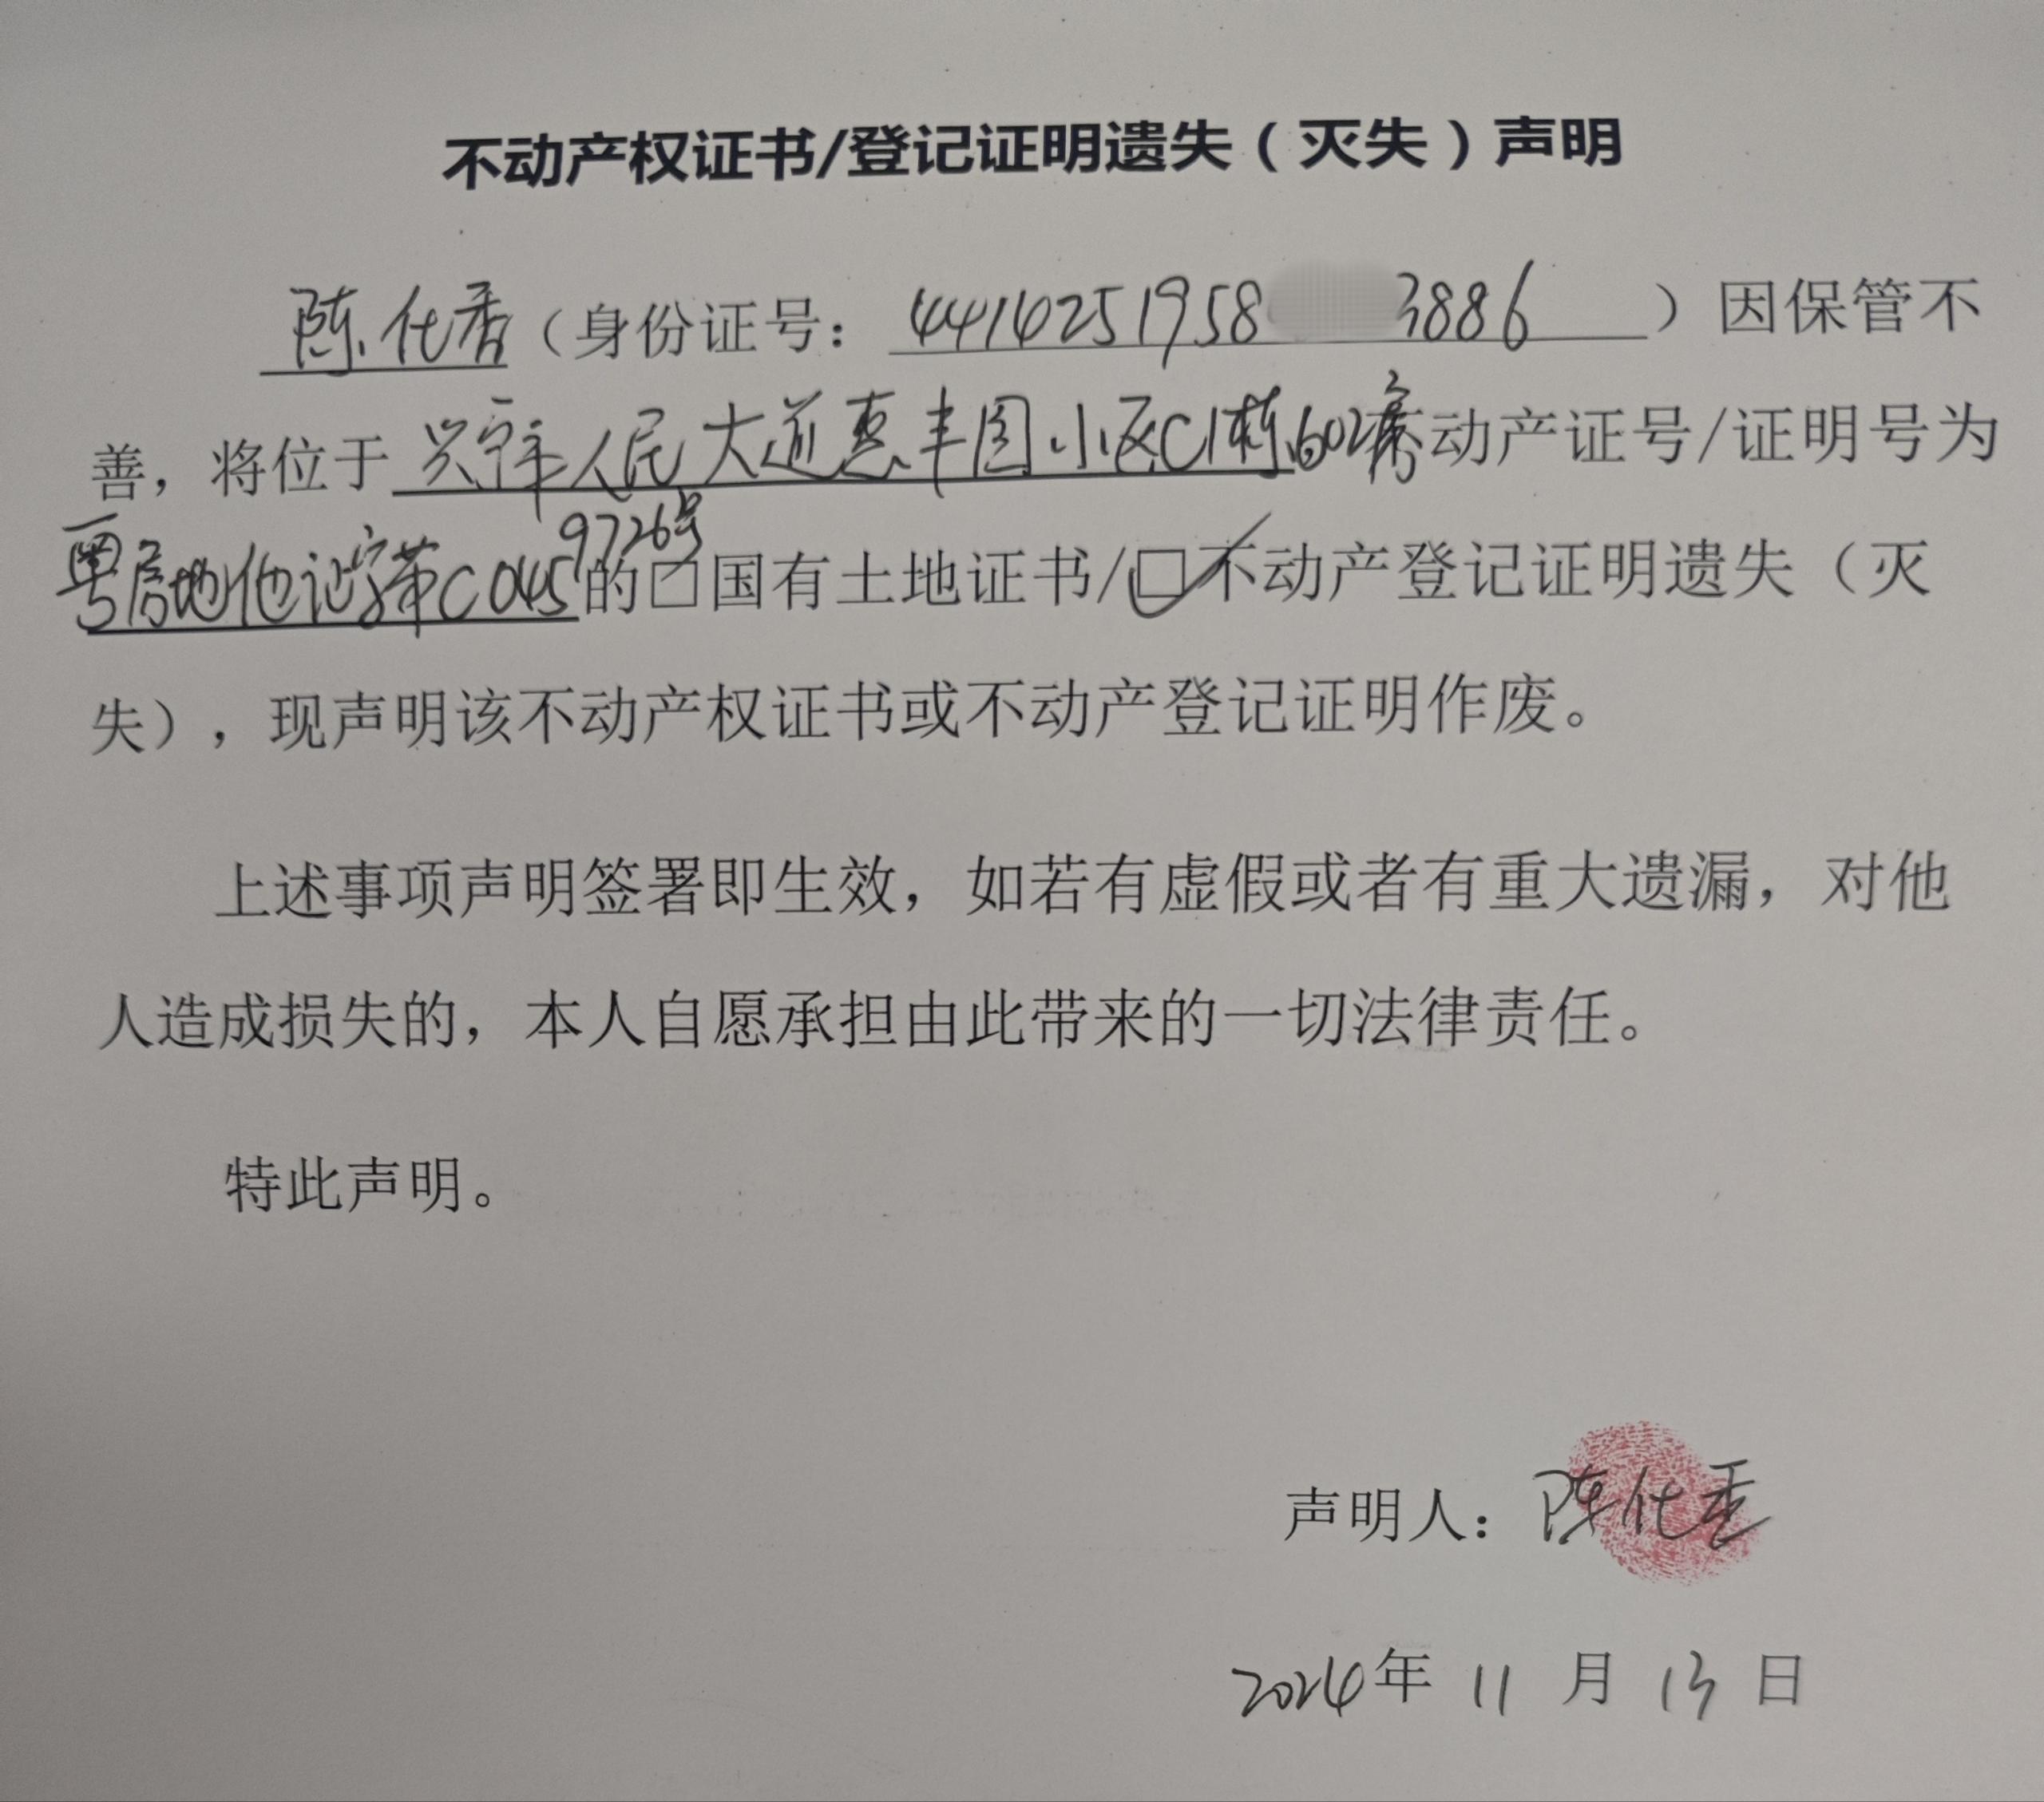 不动产权证书/登记证明遗失（灭失）声明
陈仕香（身份证号：4414251958 3886）因保管不
善，将位于兴宁市人民大道惠丰园小区C1栋602房不动产证号/证明号为
粤房地他证字第C0459726号的□国有土地证书/☑不动产登记证明遗失（灭
失），现声明该不动产权证书或不动产登记证明作废。
上述事项声明签署即生效，如若有虚假或者有重大遗漏，对他
人造成损失的，本人自愿承担由此带来的一切法律责任。
特此声明。
声明人：陈仕香
2024年 11 月 13 日